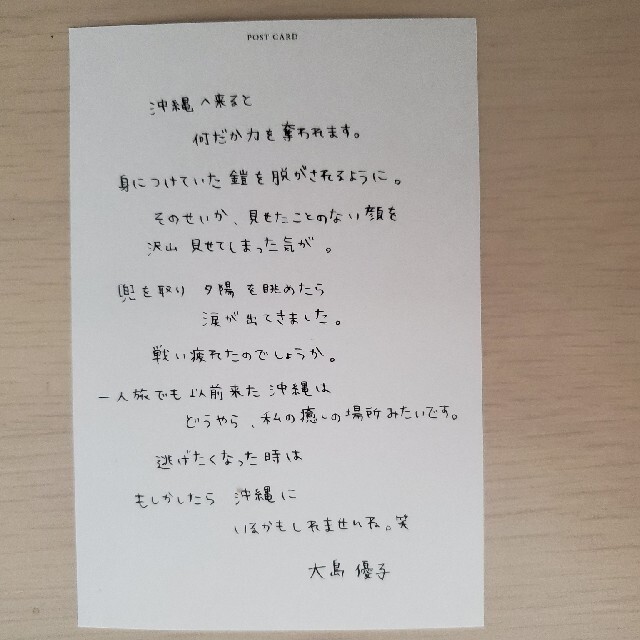 POST CARD
沖縄へ来ると
何だか力を奪われます。
身につけていた鎧を脱がされるように。
そのせいか、見せたことのない顔を
沢山 見せてしまった気が。
兜を取り 夕陽を眺めたら
涙が出てきました。
戦い疲れたのでしょうか。
一人旅でも以前来た沖縄は
どうやら、私の癒しの場所みたいです。
逃げたくなった時は
もしかしたら 沖縄に
いるかもしれませんね。笑
大島 優子